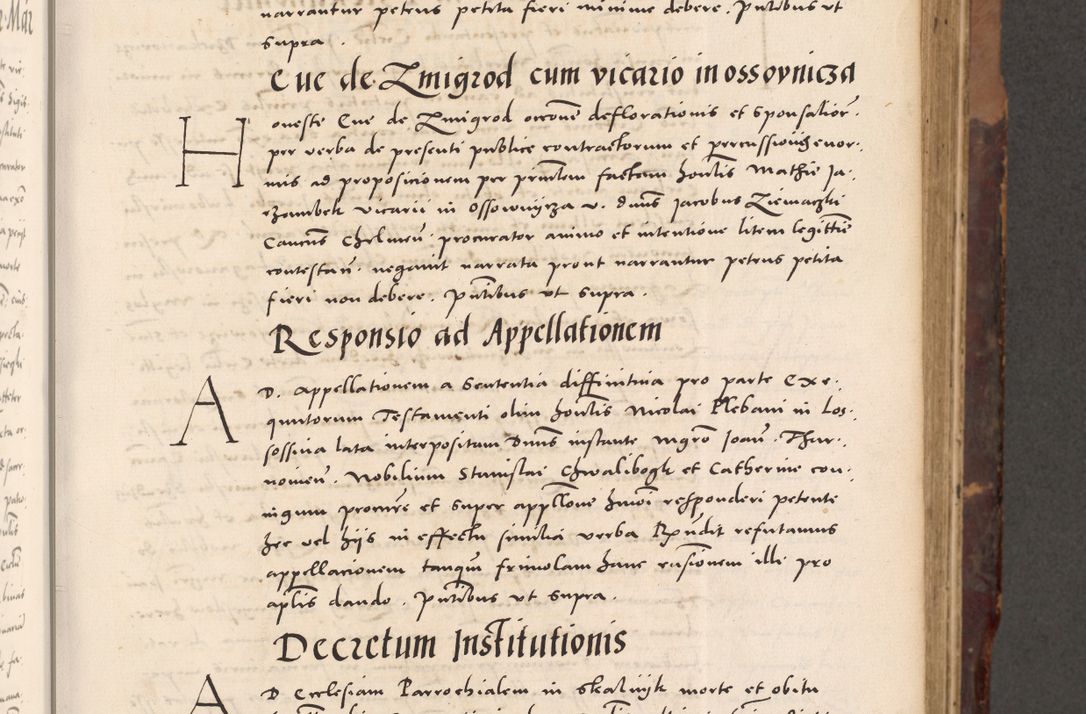 narrantur petens petita fieri minime debere. Pntibus ut
supra.
Eue de Zmigrod cum vicario in ossovnicza
Honeste Eue de Zmigrod occone deflorationis et sponsalior.
per verba de presenti publice contractorum et percussionis enor.
mis ad proposicionem per prntem factam honlis Mathie Ja.
czambek vicarii in Ossownycza v. dnus Jacobus Ziemaczki
Canens Chelmen. procurator animo et intentione litem legittie
contestan. negavit narrata prout narrantur petens petita
fieri non debere. Pntibus ut supra.
Responsio ad Appellationem
AD. appellationem a Sententia diffinitiva pro parte Exe.
quutorum Testamenti olim honlis Nicolai Plebani in Los.
sossina lata interpositam Dnus instante mgro Joan. Thur.
noimen. Nobilium Stanislai Chwalibogk et Catherine con.
iugum procure et super appllone hmoi responderi petente
hec vel hijs in effectu similia verba Rndit refutamus
appellacionem tanqum frivolam hanc rnsionem illi pro
aplis dando. Pntibus ut supra.
Decretum Institutionis
AD Ecclesiam Parrochialem in skalnyk morte et obitu